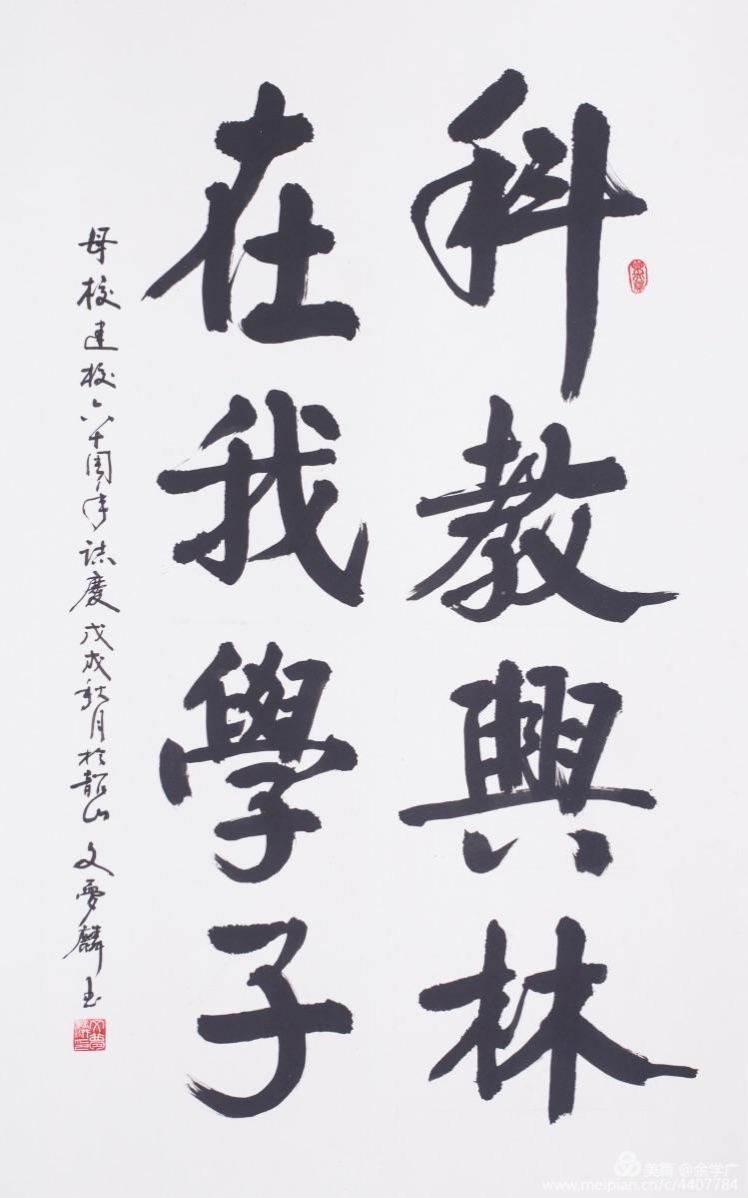 科教興林
在我學子
母校建校六十周年誌慶 戊戌秋月於韶山 文 麟書
美篇 @余学广
www.meipian.cn/c/4407784